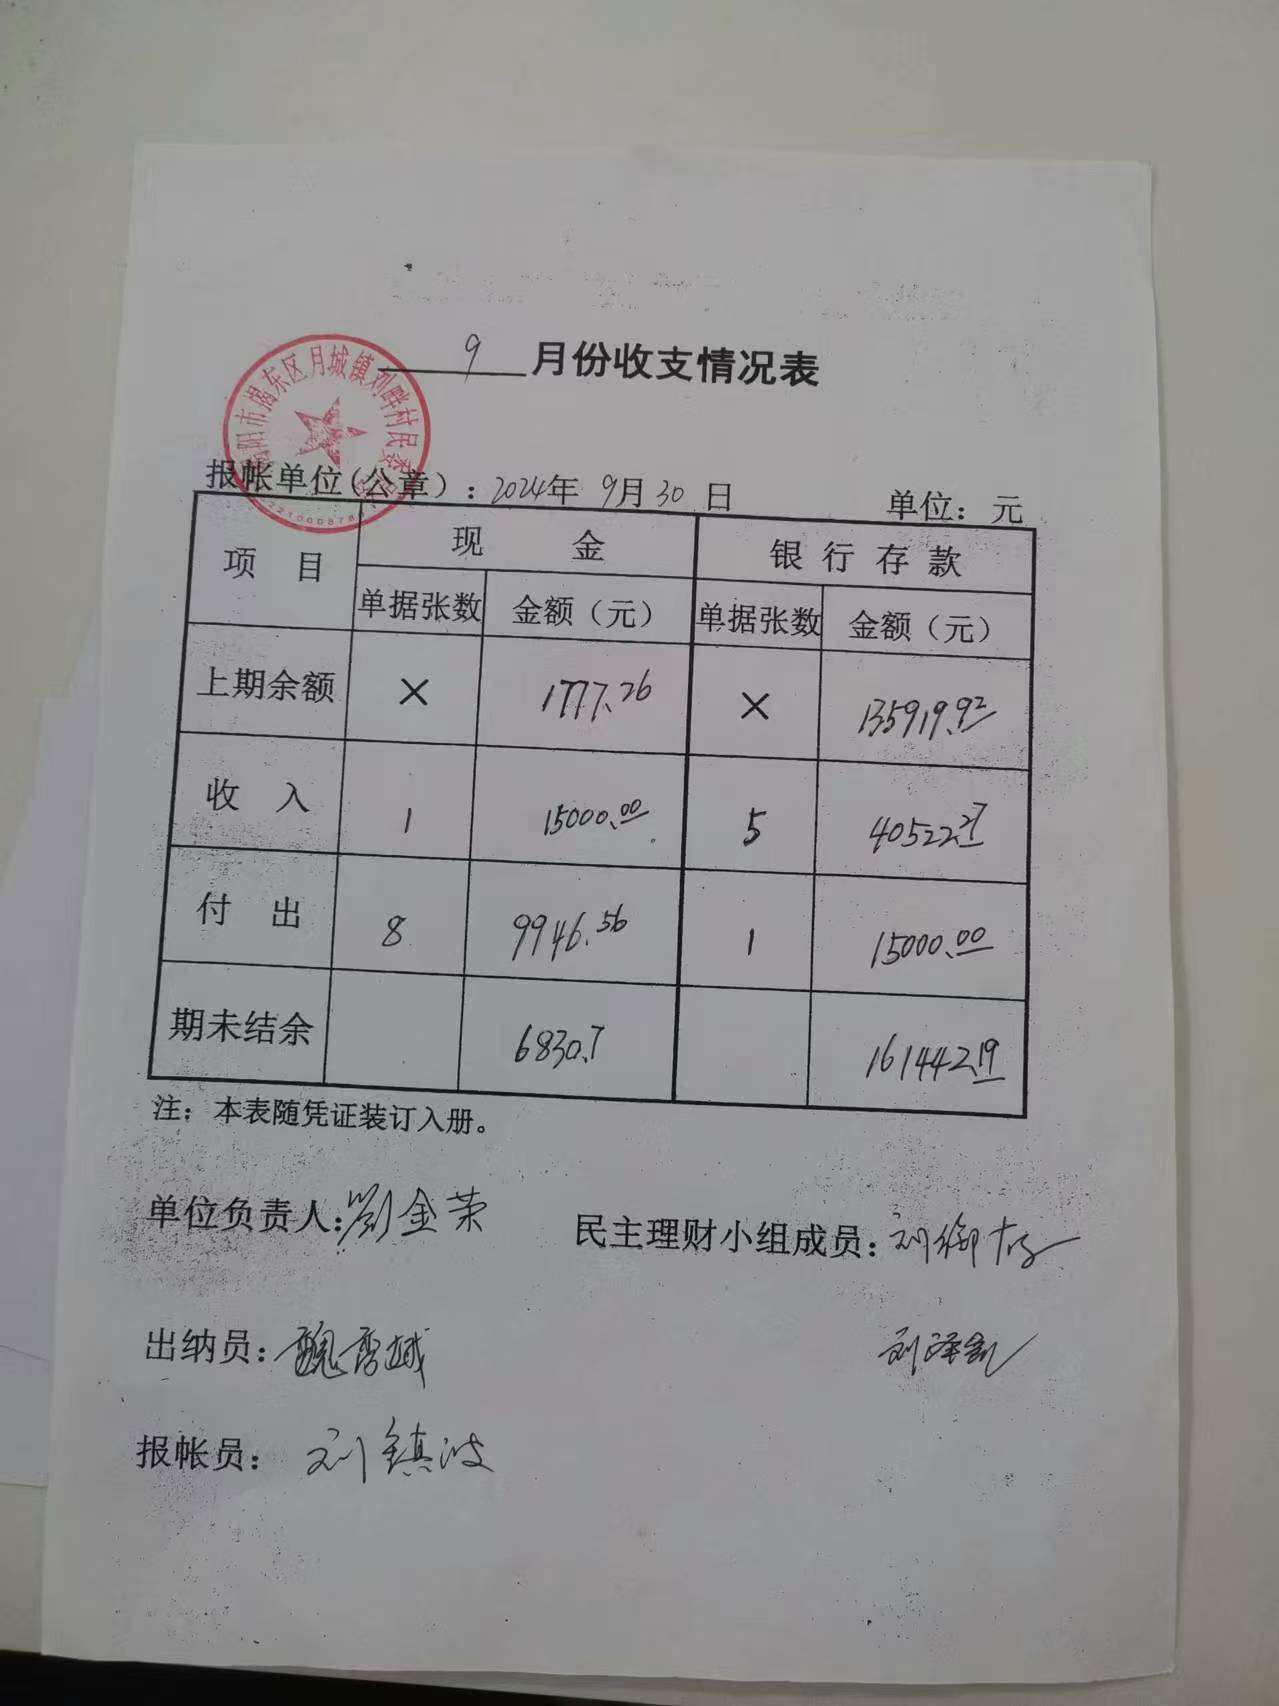 9 月份收支情况表
揭阳市揭东区月城镇刘畔村民委员会
报帐单位(公章)：2024年 9月 30 日 单位：元
项 目 现 金 银 行 存 款
单据张数 金额（元） 单据张数 金额（元）
上期余额 × 1777.26 × 135919.92
收 入 1 15000.00 5 40522.27
付 出 8 9946.56 1 15000.00
期未结余 6830.7 161442.19
注：本表随凭证装订入册。
单位负责人：劉金荣 民主理财小组成员：刘
出纳员：魏 刘泽凯
报帐员：刘镇波